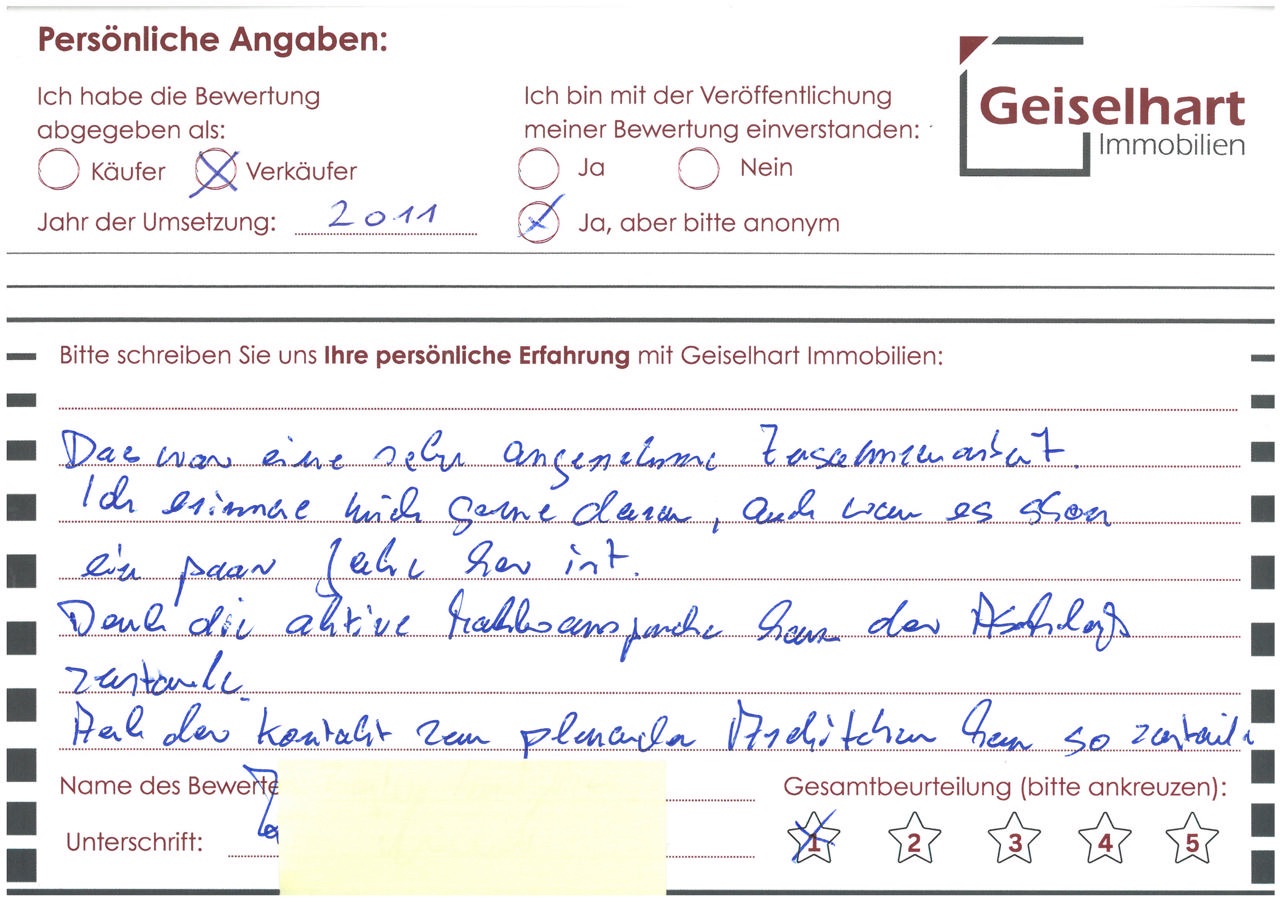 Persönliche Angaben:
Ich habe die Bewertung
abgegeben als:
Käufer Verkäufer
Jahr der Umsetzung: 2011
Ich bin mit der Veröffentlichung
meiner Bewertung einverstanden:
Ja Nein
Ja, aber bitte anonym
Geiselhart
Immobilien
Bitte schreiben Sie uns Ihre persönliche Erfahrung mit Geiselhart Immobilien:
Das war eine sehr angenehme Zusammenarbeit.
Ich erinnere mich gerne daran, auch wenn es schon
ein paar Jahre her ist.
Dank die aktive kam der
zustande.
Auch der Kontakt zum planenden kam so zustande
Name des Bewerte
Gesamtbeurteilung (bitte ankreuzen):
Unterschrift:
1 2 3 4 5